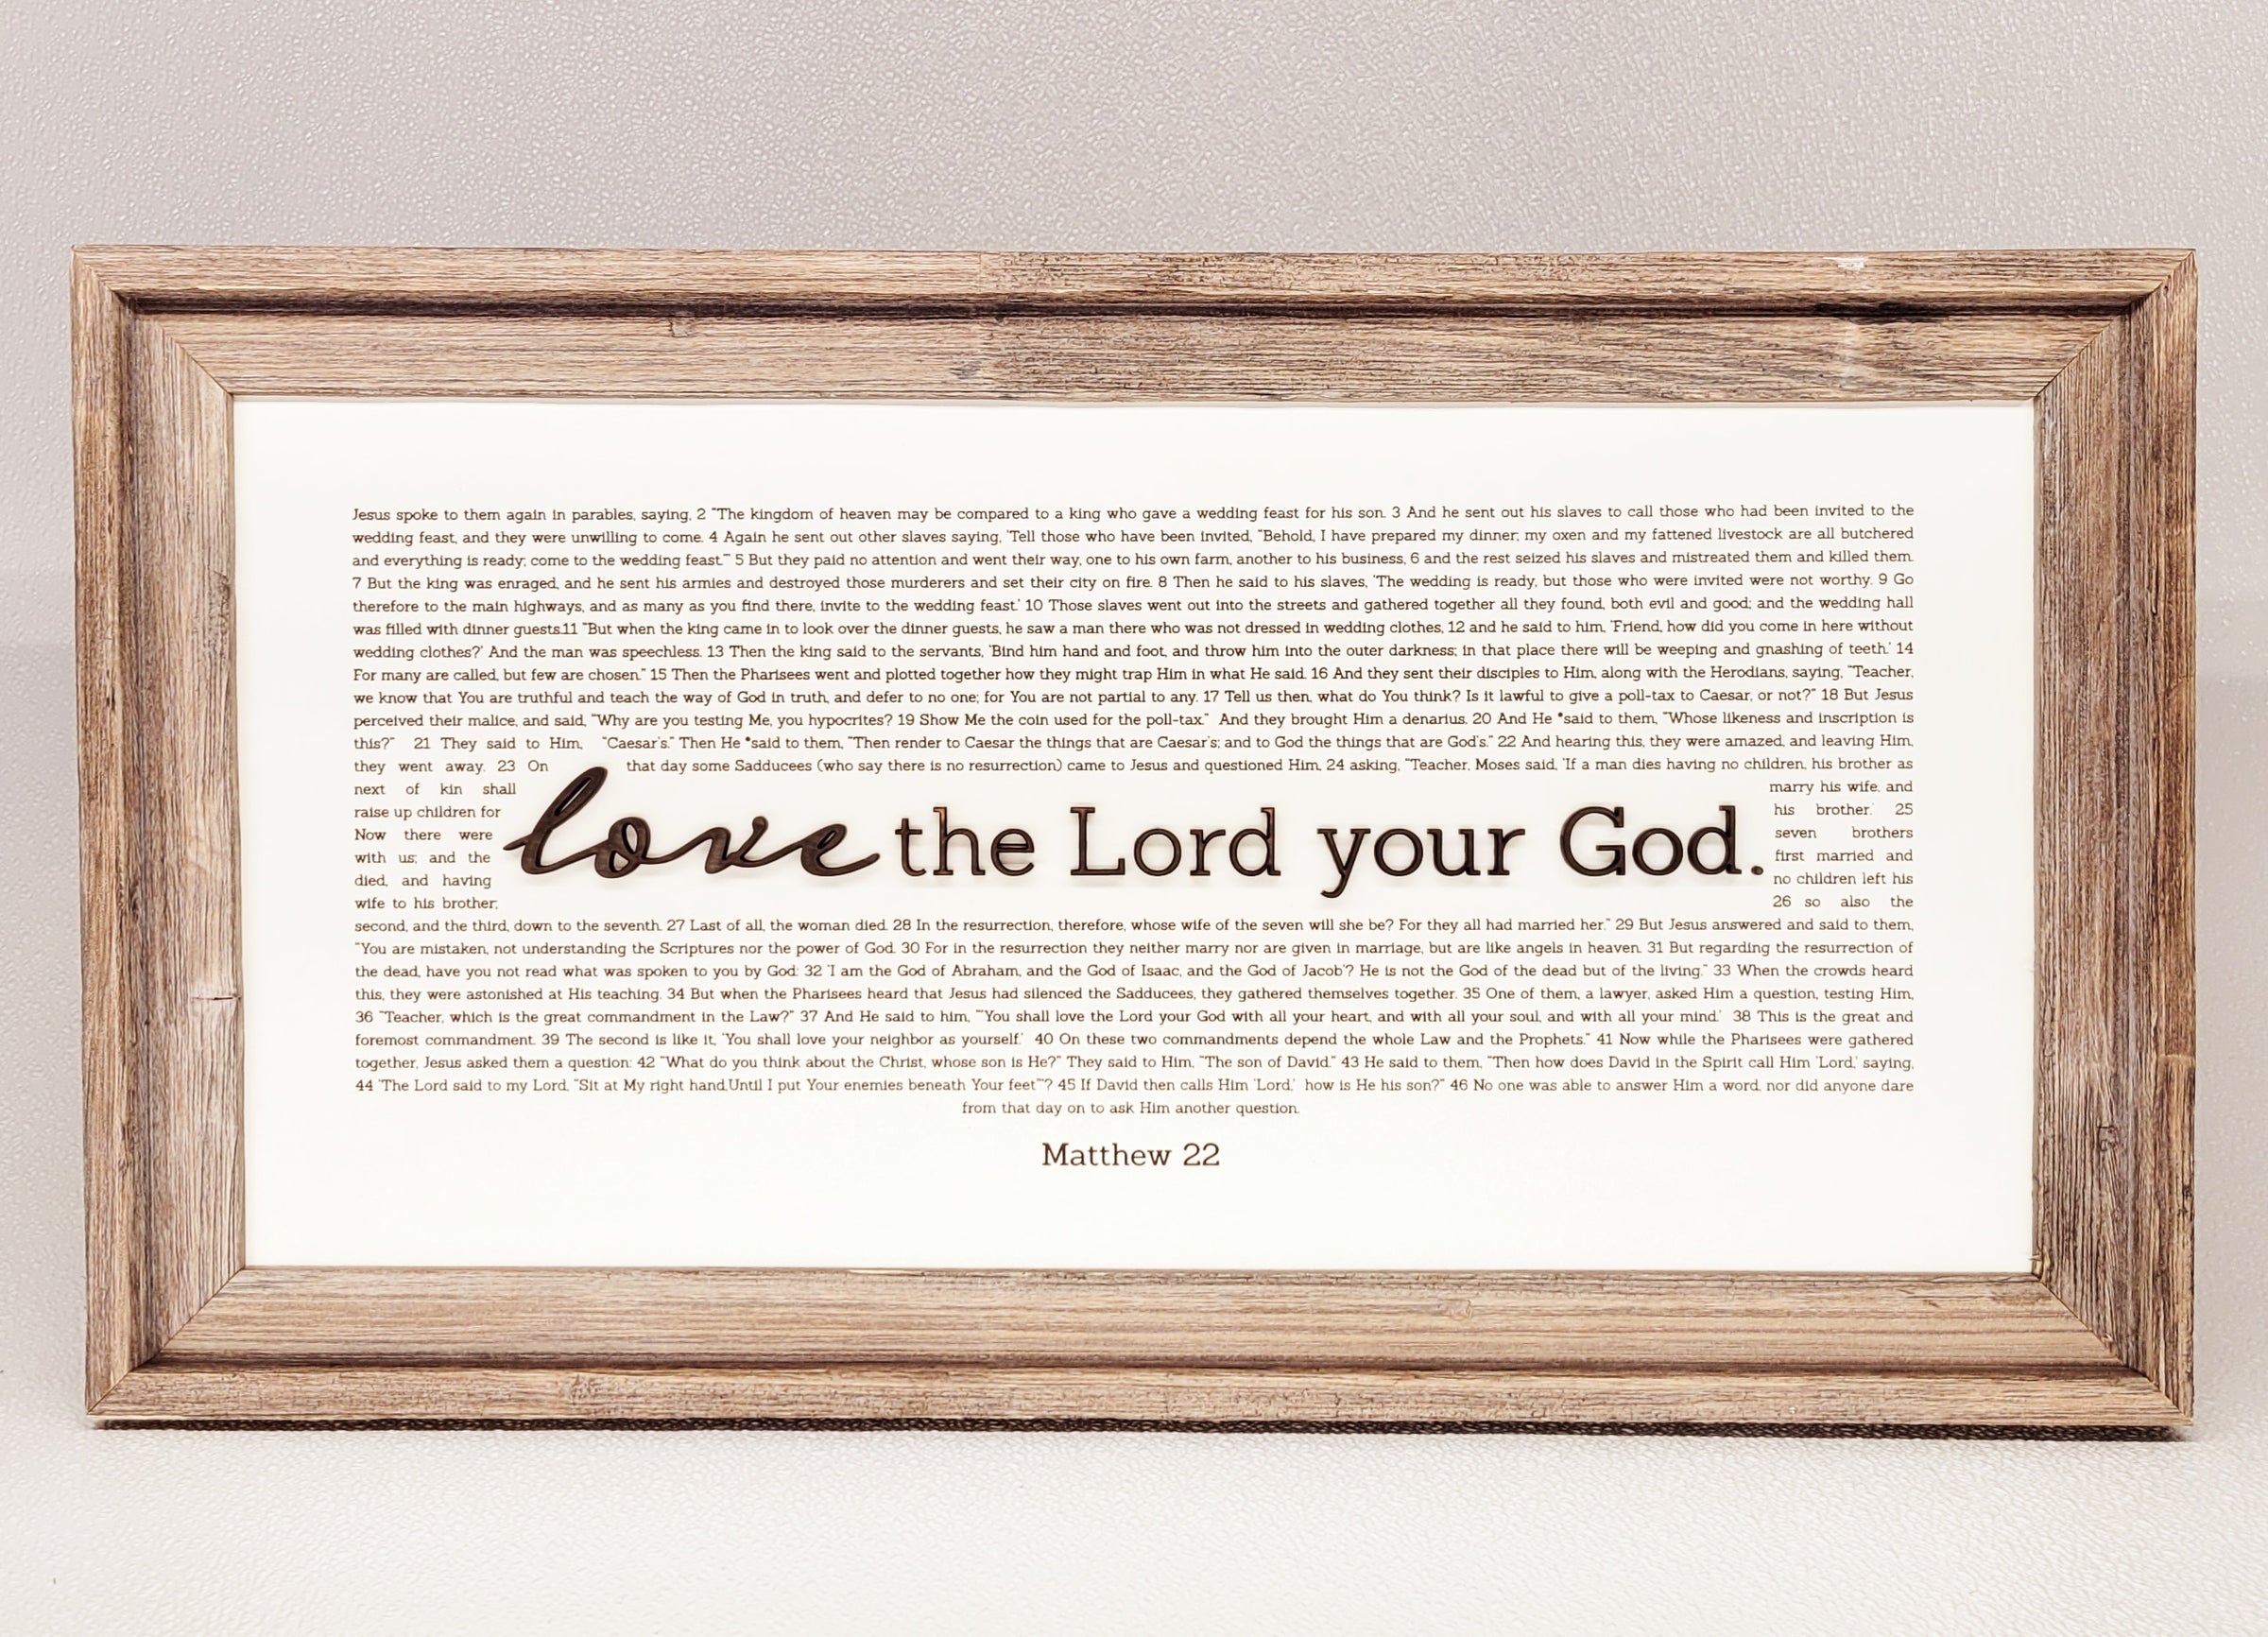 Jesus spoke to them again in parables, saying, 2 "The kingdom of heaven may be compared to a king who gave a wedding feast for his son. 3 And he sent out his slaves to call those who had been invited to the
wedding feast, and they were unwilling to come. 4 Again he sent out other slaves saying, 'Tell those who have been invited, "Behold, I have prepared my dinner; my oxen and my fattened livestock are all butchered
and everything is ready; come to the wedding feast."' 5 But they paid no attention and went their way, one to his own farm, another to his business, 6 and the rest seized his slaves and mistreated them and killed them.
7 But the king was enraged, and he sent his armies and destroyed those murderers and set their city on fire. 8 Then he said to his slaves, 'The wedding is ready, but those who were invited were not worthy. 9 Go
therefore to the main highways, and as many as you find there, invite to the wedding feast.' 10 Those slaves went out into the streets and gathered together all they found, both evil and good; and the wedding hall
was filled with dinner guests.11 "But when the king came in to look over the dinner guests, he saw a man there who was not dressed in wedding clothes, 12 and he said to him, 'Friend, how did you come in here without
wedding clothes?' And the man was speechless. 13 Then the king said to the servants, 'Bind him hand and foot, and throw him into the outer darkness; in that place there will be weeping and gnashing of teeth.' 14
For many are called, but few are chosen." 15 Then the Pharisees went and plotted together how they might trap Him in what He said. 16 And they sent their disciples to Him, along with the Herodians, saying, "Teacher,
we know that You are truthful and teach the way of God in truth, and defer to no one; for You are not partial to any. 17 Tell us then, what do You think? Is it lawful to give a poll-tax to Caesar, or not?" 18 But Jesus
perceived their malice, and said, "Why are you testing Me, you hypocrites? 19 Show Me the coin used for the poll-tax." And they brought Him a denarius. 20 And He *said to them, "Whose likeness and inscription is
this?" 21 They said to Him, "Caesar's." Then He *said to them, "Then render to Caesar the things that are Caesar's; and to God the things that are God's." 22 And hearing this, they were amazed, and leaving Him,
they went away. 23 On that day some Sadducees (who say there is no resurrection) came to Jesus and questioned Him, 24 asking, "Teacher, Moses said, 'If a man dies having no children, his brother as
next of kin shall marry his wife, and
raise up children for his brother.' 25
Now there were seven brothers
love the Lord your God.
with us; and the first married and
died, and having no children left his
wife to his brother; 26 so also the
second, and the third, down to the seventh. 27 Last of all, the woman died. 28 In the resurrection, therefore, whose wife of the seven will she be? For they all had married her." 29 But Jesus answered and said to them,
"You are mistaken, not understanding the Scriptures nor the power of God. 30 For in the resurrection they neither marry nor are given in marriage, but are like angels in heaven. 31 But regarding the resurrection of
the dead, have you not read what was spoken to you by God: 32 'I am the God of Abraham, and the God of Isaac, and the God of Jacob'? He is not the God of the dead but of the living." 33 When the crowds heard
this, they were astonished at His teaching. 34 But when the Pharisees heard that Jesus had silenced the Sadducees, they gathered themselves together. 35 One of them, a lawyer, asked Him a question, testing Him,
36 "Teacher, which is the great commandment in the Law?" 37 And He said to him, "'You shall love the Lord your God with all your heart, and with all your soul, and with all your mind.' 38 This is the great and
foremost commandment. 39 The second is like it, 'You shall love your neighbor as yourself.' 40 On these two commandments depend the whole Law and the Prophets." 41 Now while the Pharisees were gathered
together, Jesus asked them a question: 42 "What do you think about the Christ, whose son is He?" They said to Him, "The son of David." 43 He said to them, "Then how does David in the Spirit call Him 'Lord,' saying,
44 'The Lord said to my Lord, "Sit at My right hand,Until I put Your enemies beneath Your feet"'? 45 If David then calls Him 'Lord,' how is He his son?" 46 No one was able to answer Him a word, nor did anyone dare
from that day on to ask Him another question.
Matthew 22